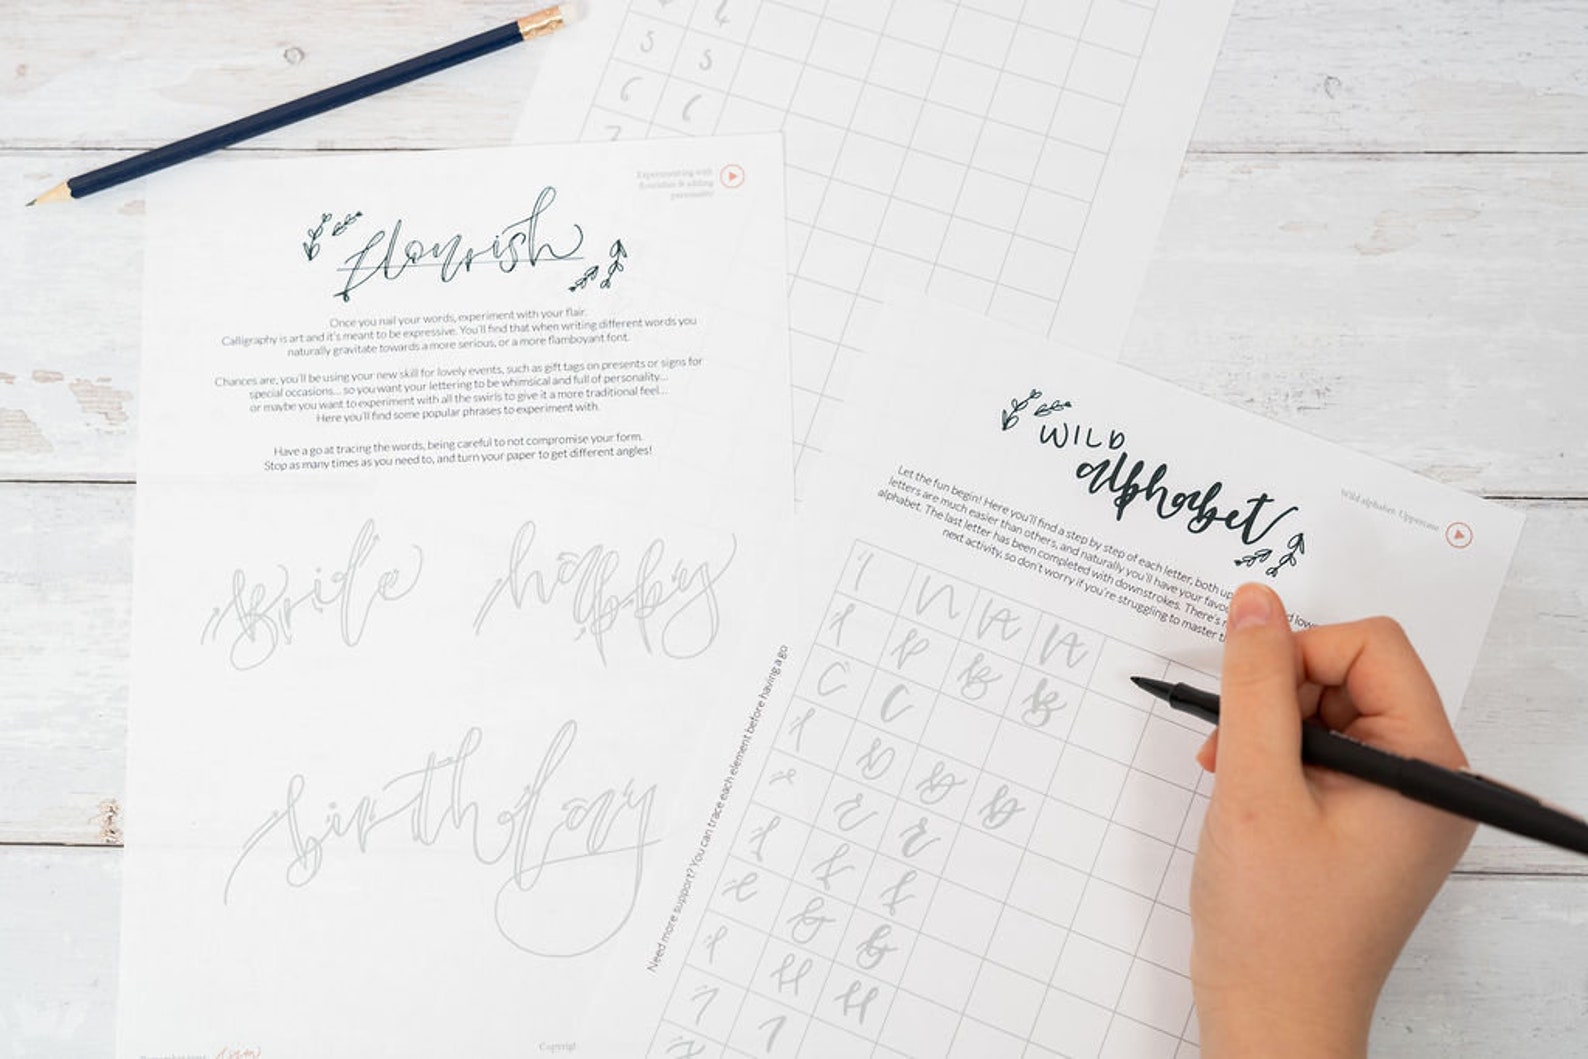 5
5
6
6
7
Experimenting with
flourishes & adding
flourish
Once you nail your words, experiment with your flair.
Calligraphy is art and it's meant to be expressive. You'll find that when writing different words you
naturally gravitate towards a more serious, or a more flamboyant font.
Chances are, you'll be using your new skill for lovely events, such as gift tags on presents or signs for
special occasions... so you want your lettering to be whimsical and full of personality...
or maybe you want to experiment with all the swirls to give it a more traditional feel...
Here you'll find some popular phrases to experiment with.
Have a go at tracing the words, being careful to not compromise your form.
Stop as many times as you need to, and turn your paper to get different angles!
Bride happy
birthday
Copyrig
Wild alphabet: Uppercase
WILD
alphabet
Let the fun begin! Here you'll find a step by step of each letter, both up
letters are much easier than others, and naturally you'll have your favou
alphabet. The last letter has been completed with downstrokes. There's
next activity, so don't worry if you're struggling to master t
Need more support? You can trace each element before having a go
A A
B B
C C
D D D
E E
F F
G G
H H